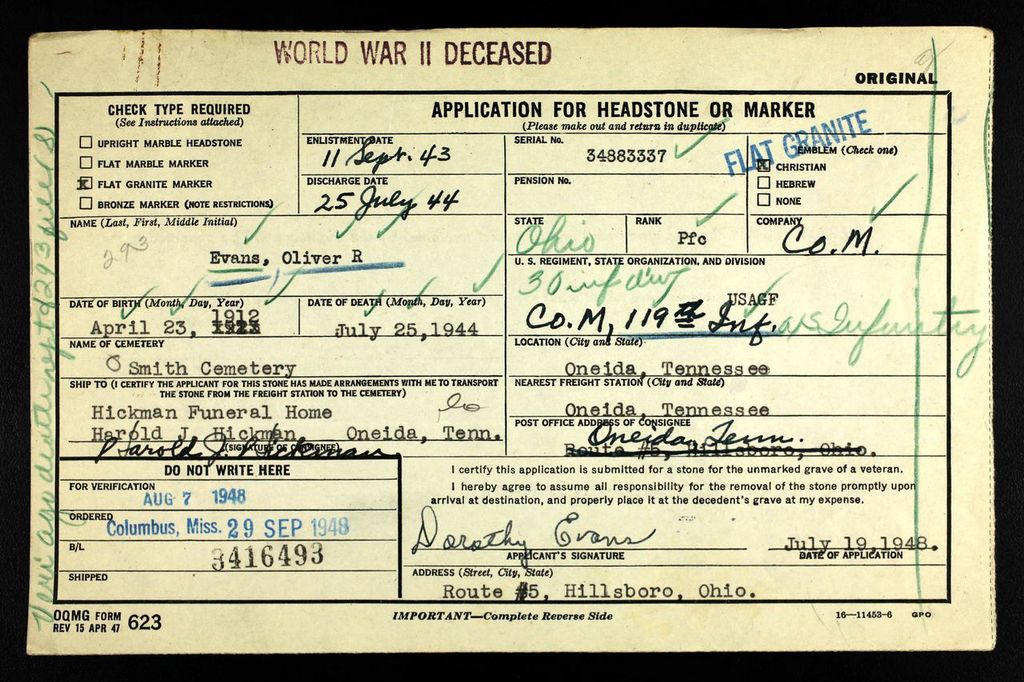 WORLD WAR II DECEASED
ORIGINAL
CHECK TYPE REQUIRED
(See Instructions attached)
UPRIGHT MARBLE HEADSTONE
FLAT MARBLE MARKER
X FLAT GRANITE MARKER
BRONZE MARKER (NOTE RESTRICTIONS)
APPLICATION FOR HEADSTONE OR MARKER
(Please make out and return in duplicate)
ENLISTMENT DATE
11 Sept. 43
DISCHARGE DATE
25 July 44
SERIAL No.
34883337
PENSION No.
FLAT GRANITE
EMBLEM (Check one)
X CHRISTIAN
HEBREW
NONE
NAME (Last, First, Middle Initial)
293
Evans, Oliver R
STATE
Ohio
RANK
Pfc
COMPANY
Co. M.
U. S. REGIMENT, STATE ORGANIZATION, AND DIVISION
30 inf div
USAGF
Co. M, 119th Inf. US Infantry
DATE OF BIRTH (Month, Day, Year)
1912
April 23,
DATE OF DEATH (Month, Day, Year)
July 25, 1944
NAME OF CEMETERY
Smith Cemetery
LOCATION (City and State)
Oneida, Tennessee
SHIP TO (I CERTIFY THE APPLICANT FOR THIS STONE HAS MADE ARRANGEMENTS WITH ME TO TRANSPORT
THE STONE FROM THE FREIGHT STATION TO THE CEMETERY)
Hickman Funeral Home
Harold J. Hickman Oneida, Tenn.
Harold J. Hickman
(SIGNATURE OF CONSIGNEE)
NEAREST FREIGHT STATION (City and State)
Oneida, Tennessee
POST OFFICE ADDRESS OF CONSIGNEE
Oneida, Tenn.
Route #5, Hillsboro, Ohio.
DO NOT WRITE HERE
FOR VERIFICATION
AUG 7 1948
ORDERED
Columbus, Miss. 29 SEP 1948
B/L
3416493
SHIPPED
I certify this application is submitted for a stone for the unmarked grave of a veteran.
I hereby agree to assume all responsibility for the removal of the stone promptly upon
arrival at destination, and properly place it at the decedent's grave at my expense.
Dorothy Evans
APPLICANT'S SIGNATURE
July 19, 1948.
DATE OF APPLICATION
ADDRESS (Street, City, State)
Route #5, Hillsboro, Ohio.
OQMG FORM
REV 15 APR 47 623
IMPORTANT—Complete Reverse Side
16—11453-6 GPO